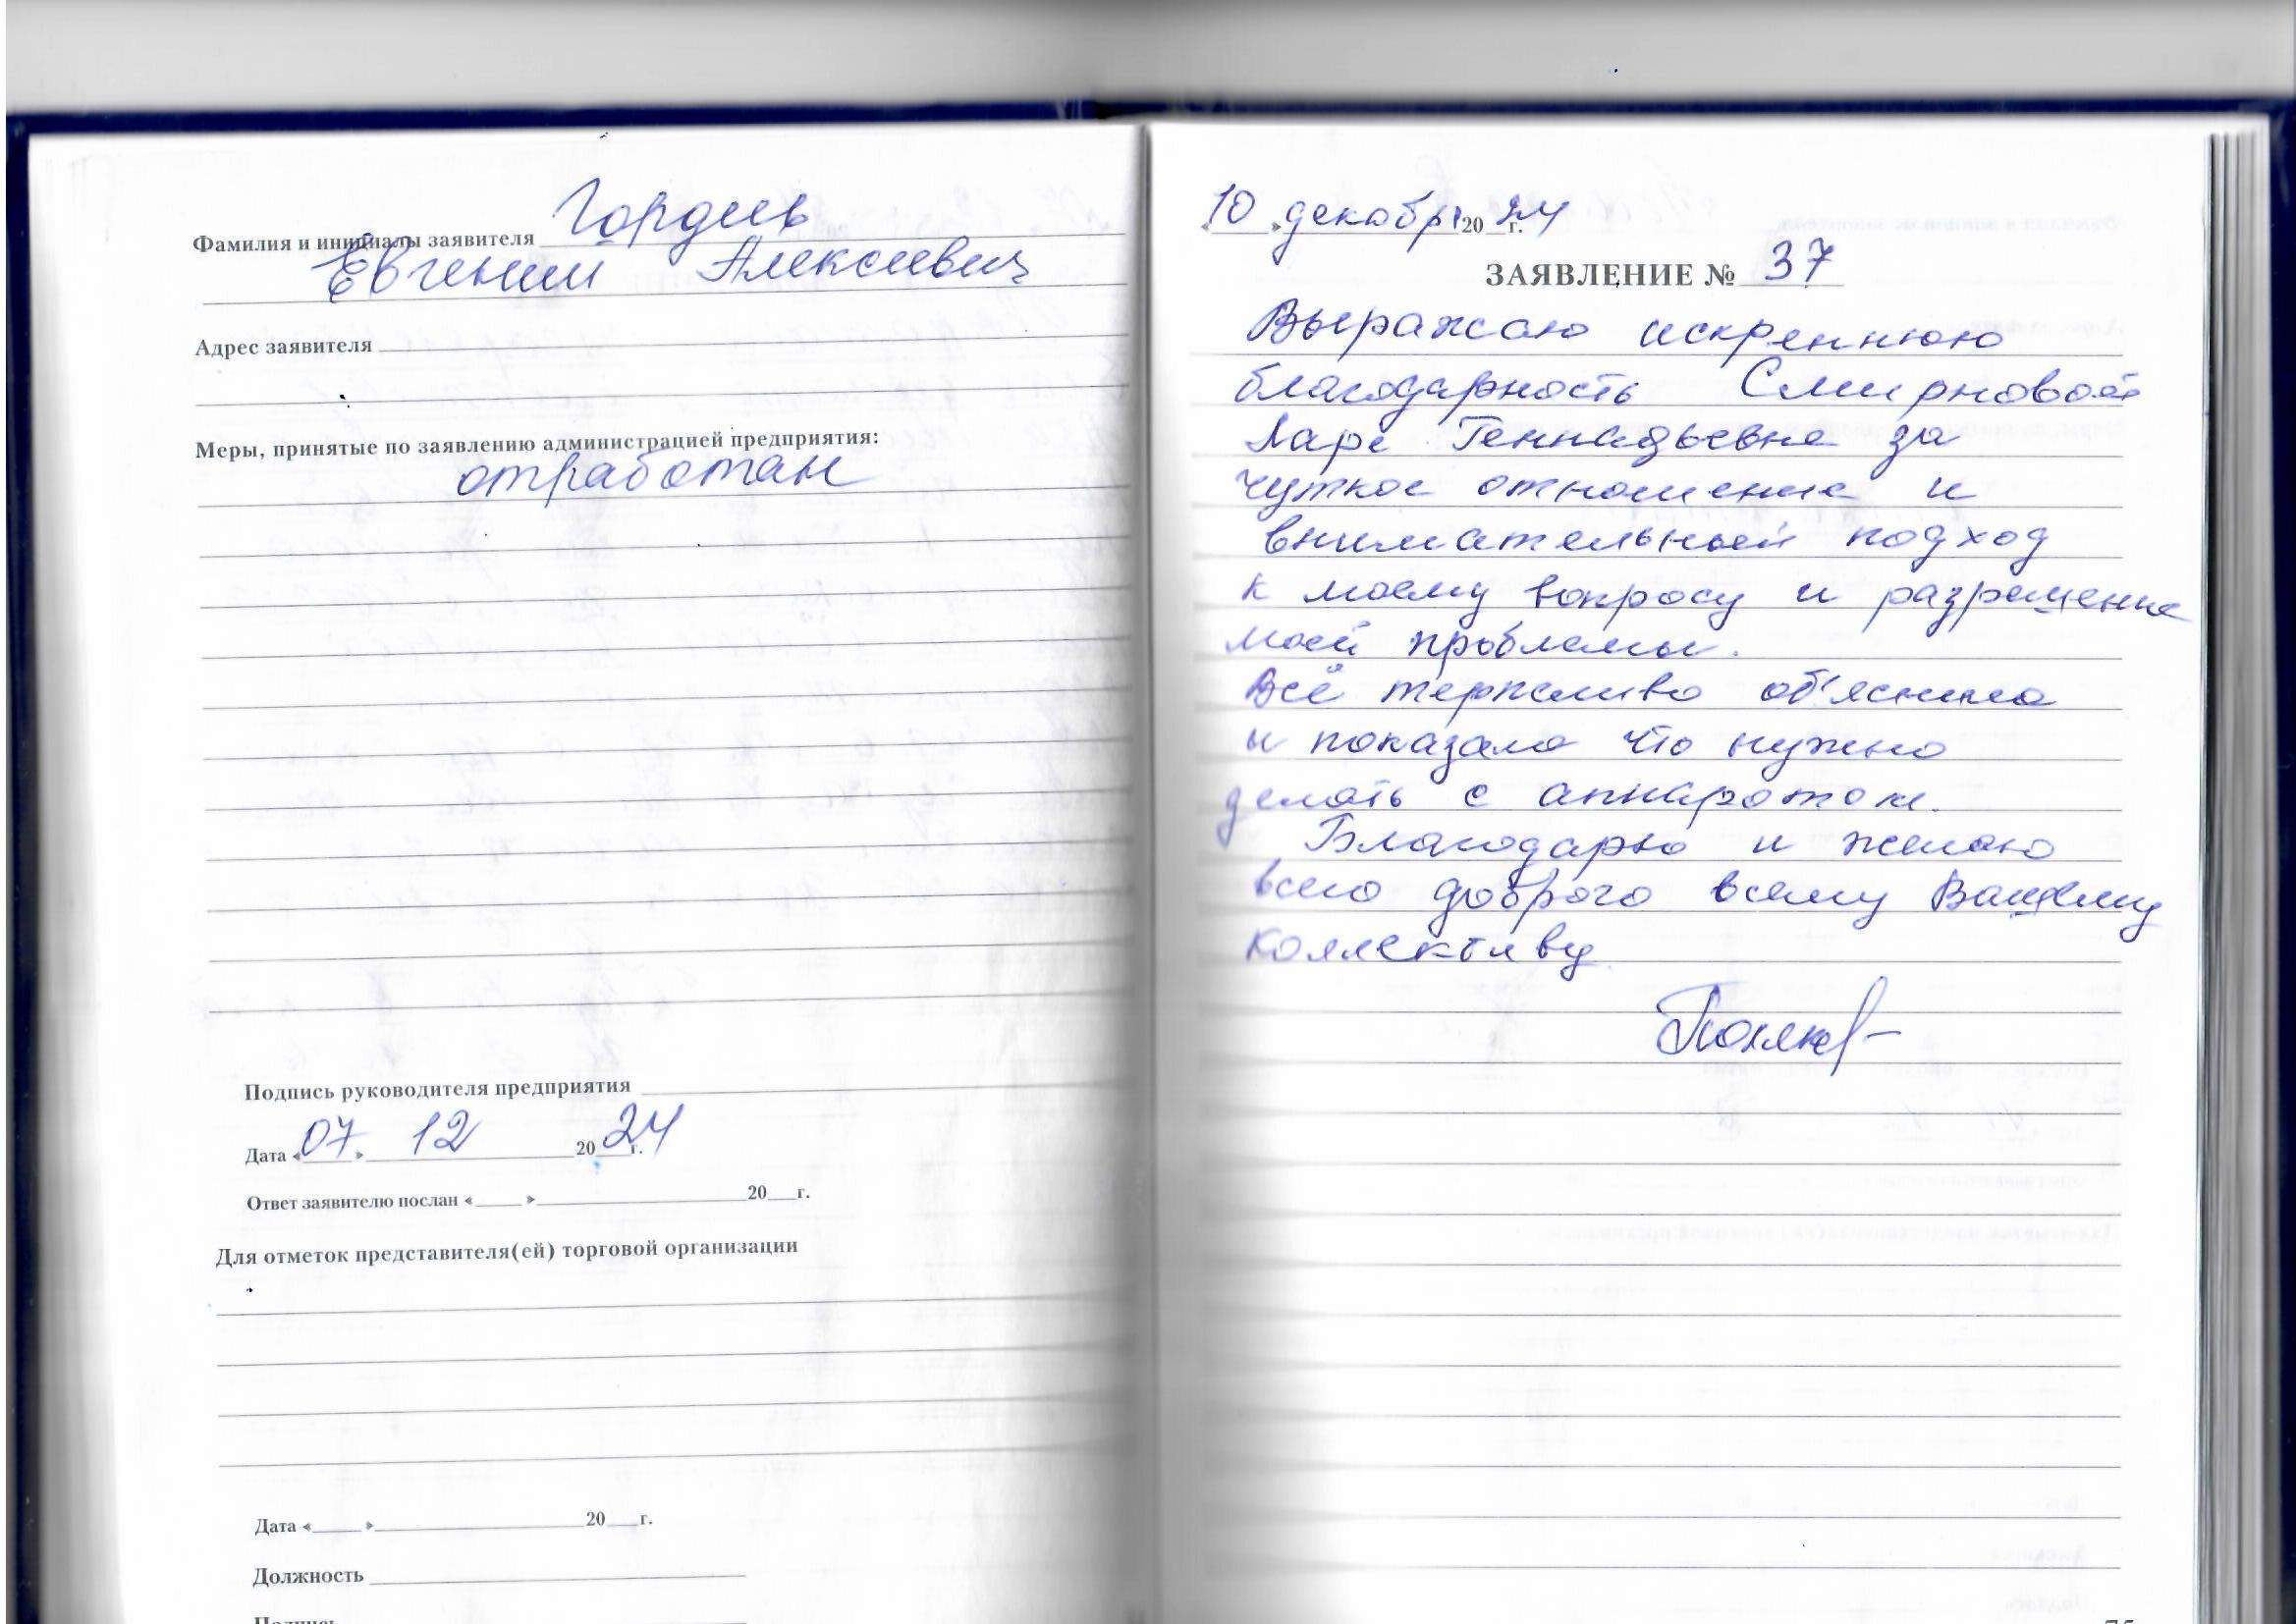 Фамилия и инициалы заявителя Гордеев
Евгений Алексеевич
Адрес заявителя
Меры, принятые по заявлению администрацией предприятия:
отработан
Подпись руководителя предприятия
Дата «07» 12 2024г.
Ответ заявителю послан «____» 20___г.
Для отметок представителя(ей) торговой организации
Дата «____» 20___г.
Должность
Подпись
«10» декабря 2024г.
ЗАЯВЛЕНИЕ № 37
Выражаю искреннюю
благодарность Смирновой
Ларе Геннадьевне за
чуткое отношение и
внимательный подход
к моему вопросу и разрешение
моей проблемы.
Всё терпеливо об'яснила
и показала что нужно
делать с аппаратом.
Благодарю и желаю
всего доброго всему Вашему
коллективу